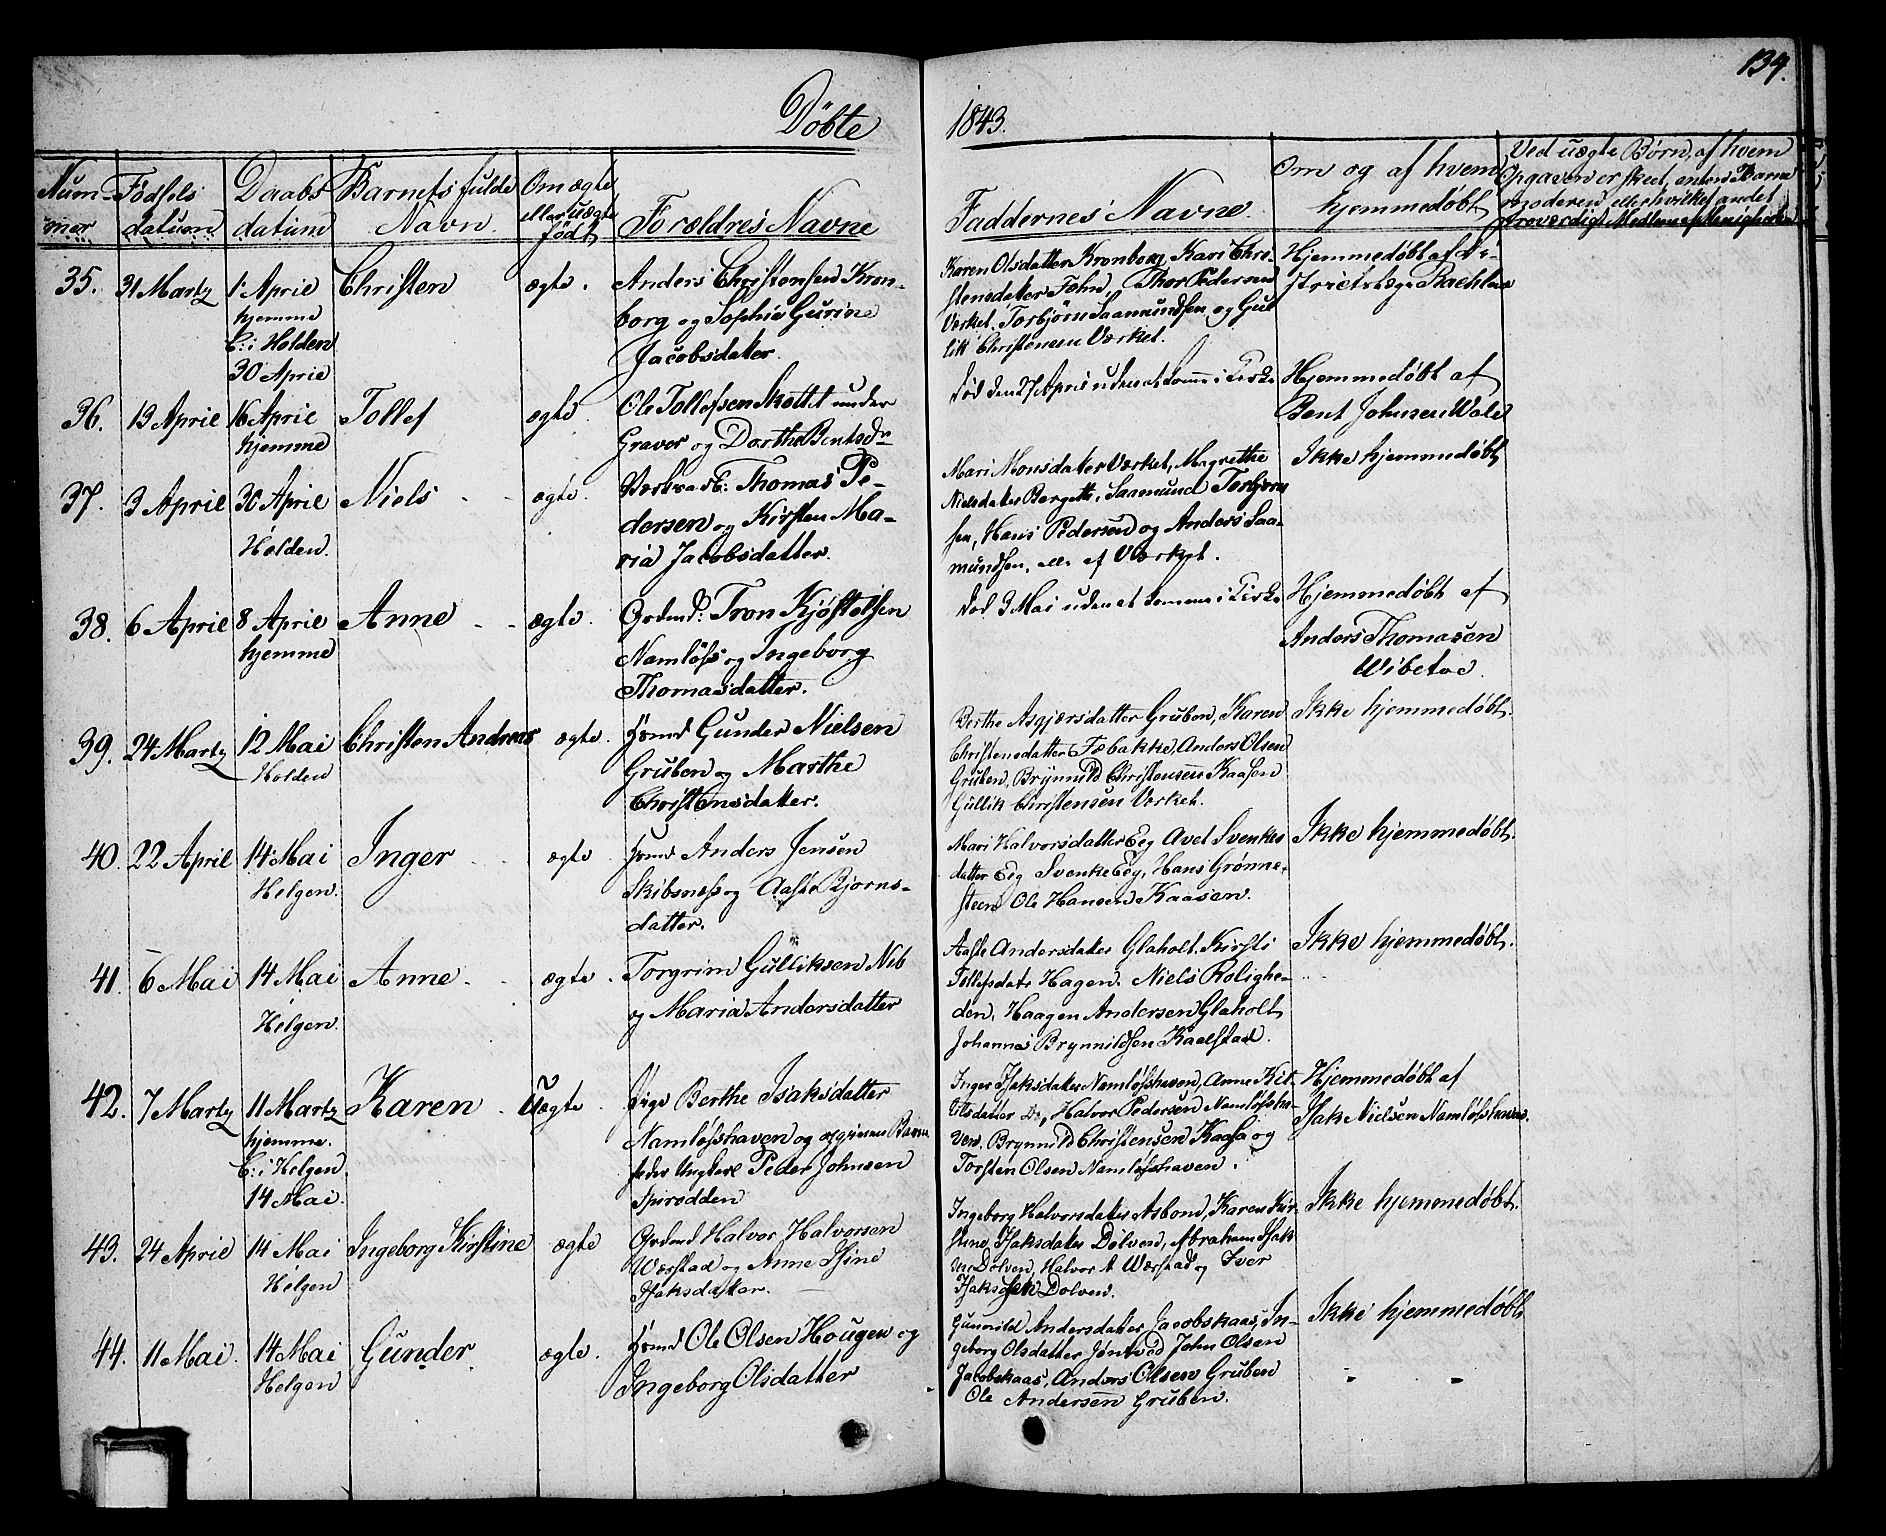 134.
Döbte 1843.
Num-
mer
Fødsels
datum
Daabs
datum
Barnets fulde
Navn
Om ægte
eller uægte
født
Forældres Navne
Faddernes Navne
Om og af hvem
hjemmedøbt
Ved uægte Børn, af hvem
Opgaven er skeet, enten Barne
moderen eller hvilket andet
troværdigt Medlem af Menigheden
35. 31 Martz 1 April Christen ægte.
hjemme
C: i Holden
30 April
Anders Christensen Kron-
borg og Sophie Gurine
Jacobsdater.
Karen Olsdatter Kronborg, Kari Chri-
stensdater Fæhn, Thor Pedersen
Værket, Torbjörn Saamundsen og Gul
lik Christensen Værket.
Hjemmedøbt af Di-
strictslæge Bachlun
36. 13 April 16 April Tollef ægte
hjemme
Ole Tollefsen Skottet under
Graver og Dorthe Bentsdr
død den 27 April uden at komme i Kirke
Hjemmedøbt af
Bent Johnsen Wale
37. 3 April 30 April Niels ægte.
Holden.
Værksarb: Thomas Pe-
dersen og Kirsten Ma-
ria Jacobsdatter.
Mari Monsdater Værket, Magrethe
Nielsdater Bergett, Saamund Torbjørn
sen, Hans Pedersen og Anders Saa-
mundsen, alle af Værket.
Ikke hjemmedøbt
38. 6 April 8 April Anne ægte.
hjemme
Grdmd: Tron Kjøstolsen
Namløss og Ingeborg
Thomasdatter.
død 3 Mai uden at komme i Kirke
Hjemmedøbt af
Anders Thomasen
Wibetoe.
39. 24 Martz 12 Mai Christen Andreas ægte.
Holden
Hsmd Gunder Nielsen
Gruben og Marthe
Christensdatter.
Berthe Asgjærsdatter Gruben, Karen
Christensdatter Fæbakke, Anders Olsen
Gruben, Brynnild Christensen Kaasen
Gullik Christensen Verket.
Ikke hjemmedøbt.
40. 22 April 14 Mai Inger ægte
Helgen.
Hsmd Anders Jensen
Skibsness og Aaste Bjorns-
datter.
Mari Halvorsdatter Eeg Avel Svenkes
datter Eeg Svenke Eeg, Hans Grønne-
steen Ole Hansen Kaasen.
Ikke hjemmedøbt.
41. 6 Mai 14 Mai Anne ægte
Helgen.
Torgrim Gulliksen Neb
og Maria Andersdatter
Aaste Andersdater Glaholt, Kirsti
Tollefsdatr Hagen. Niels Rolighe-
den, Haagen Andersen Glaholt
Johannes Brynnildsen Kaalstad.
Ikke hjemmedøbt.
42. 7 Martz 11 Martz Karen Uægte
hjemme.
C: i Helgen
14 Mai.
Pige Berthe Isaksdatter
Namløsshaven og afgiven Barne
fader Ungkarl Peder Johnsen
Spirodden
Inger Isaksdater Namløsshaven, Anne Kit-
tilsdatter Do, Halvor Pedersen Namløssha-
ven, Brynnild Christensen Kaasa og
Torsten Olsen Namløsshaven.
Hjemmedøbt af
Isak Nielsen Namløsshaven.
43. 24 April 14 Mai Ingeborg Kirstine ægte
Helgen
Grdmd Halvor Halvorsen
Wærstad og Anne Stine
Isaksdater.
Ingeborg Halvorsdater Asbond, Karen Kir-
stine Isaksdater Dolven, Abraham Isak
sen Dolven, Halvor A Wærstad og Iver
Isaksen Dolven.
Ikke hjemmedøbt.
44. 11 Mai. 14 Mai Gunder ægte.
Helgen
Hsmd Ole Olsen Hougen og
Ingeborg Olsdatter
Gunnild Andersdater Jacobskaas, In-
geborg Olsdatter Jøntved John Olsen
Jacobskaas, Anders Olsen Gruben
Ole Andersen Gruben.
Ikke hjemmedøbt